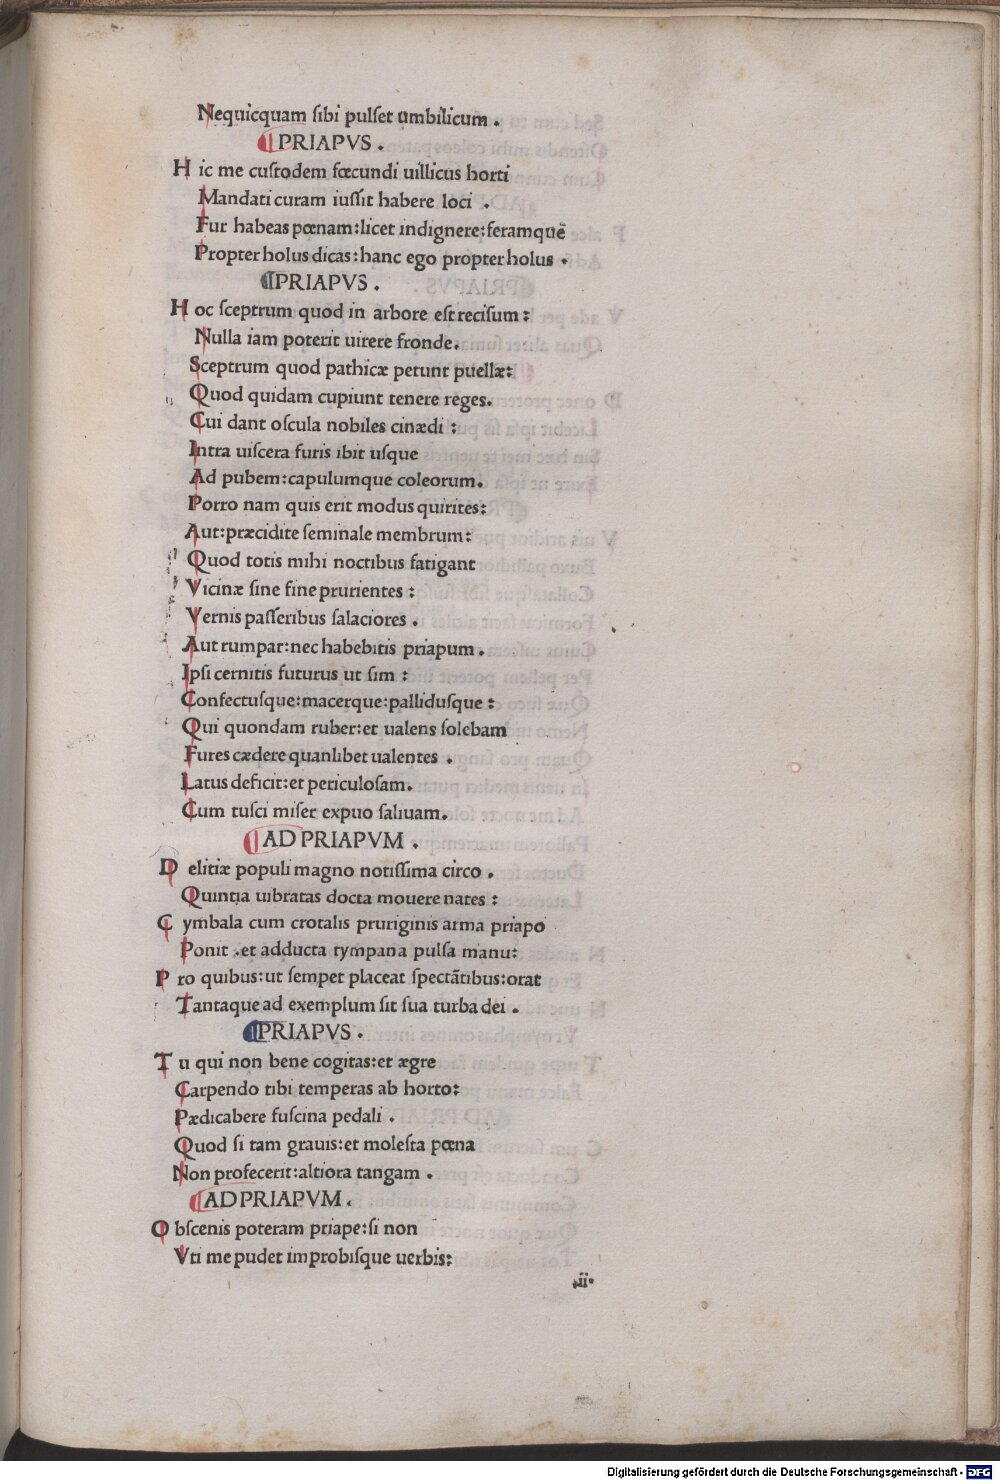 Nequicquam sibi pulset umbilicum .
PRIAPVS .
H ic me custodem fœcundi uillicus horti
Mandati curam iussit habere loci .
Fur habeas pœnam:licet indignere:feramquē
Propter holus dicas:hanc ego propter holus .
PRIAPVS .
H oc sceptrum quod in arbore est recisum:
Nulla iam poterit uirere fronde.
Sceptrum quod pathicæ petunt puellæ:
Quod quidam cupiunt tenere reges.
Cui dant oscula nobiles cinædi :
Intra uiscera furis ibit usque
Ad pubem:capulumque coleorum.
Porro nam quis erit modus quirites:
Aut:præcidite seminale membrum:
Quod totis mihi noctibus fatigant
Vicinæ sine fine prurientes :
Vernis passeribus salaciores .
Aut rumpar:nec habebitis priapum .
Ipsi cernitis futurus ut sim :
Confectusque:macerque:pallidusque :
Qui quondam ruber:et ualens solebam
Fures cædere quanlibet ualentes .
Latus deficit:et periculosam.
Cum tusci miser expuo saliuam.
AD PRIAPVM .
D elitiæ populi magno notissima circo .
Quintia uibratas docta mouere nates :
C ymbala cum crotalis pruriginis arma priapo
Ponit .et adducta tympana pulsa manu:
P ro quibus:ut semper placeat spectātibus:orat
Tantaque ad exemplum sit sua turba dei .
PRIAPVS .
T u qui non bene cogitas:et ægre
Carpendo tibi temperas ab horto:
Pædicabere fuscina pedali .
Quod si tam grauis:et molesta pœna
Non profecerit:altiora tangam .
AD PRIAPVM .
O bscenis poteram priape:si non
Vti me pudet improbisque uerbis:
.ii.
Digitalisierung gefördert durch die Deutsche Forschungsgemeinschaft - DFG